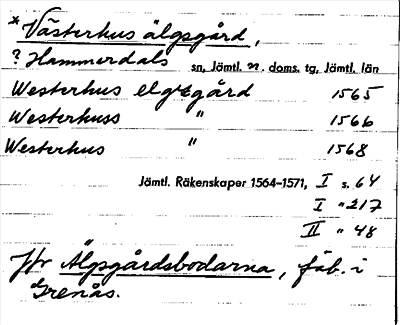 * Västerhus älgsgård,
? Hammerdals sn, Jämtl. n. doms. tg, Jämtl. län
Westerhus elgzgård 1565
Westerhuss " 1566
Westerhus " 1568
Jämtl. Räkenskaper 1564–1571, I s. 64
I " 217
II " 48
Jfr Älgsgårdsbodarna, fäb. i
Grenås.